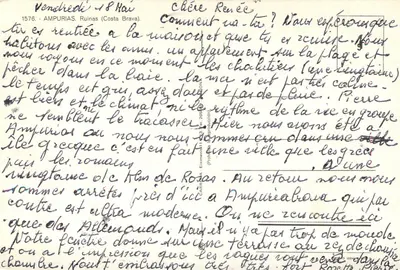 Vendredi 18 Mai Chère Renée
1576. - AMPURIAS. Ruinas (Costa Brava)
Comment va-tu ? Nous espérons que
tu es rentrée à la maison et que tu es remise. Nous
habitons avec les amis un appartement sur la plage et
nous voyons en ce moment les chalutiers (une vingtaine)
pêcher dans la baie. La mer n'est pas très calme
le temps est gris, assez doux et pas de pluie. Pierre
est bien et le climat ni le rythme de la vie en groupe
ne semblent le tracasser. Hier nous avons été à
Ampurias où nous nous sommes crus dans une
île grecque c'est en fait une ville que les grecs
puis les romains à une
vingtaine de Klm de Rosas. Au retour nous nous
sommes arrêtés près d'ici à Ampuriabrava qui par
contre est ultra moderne. On ne rencontre ici
que des Allemands. Mais il n'y a pas trop de monde
Notre fenêtre donne sur une terrasse au rez de chaussée
et on a l'impression que les vagues vont venir dans la
chambre. Nous t'embrassons très très fort